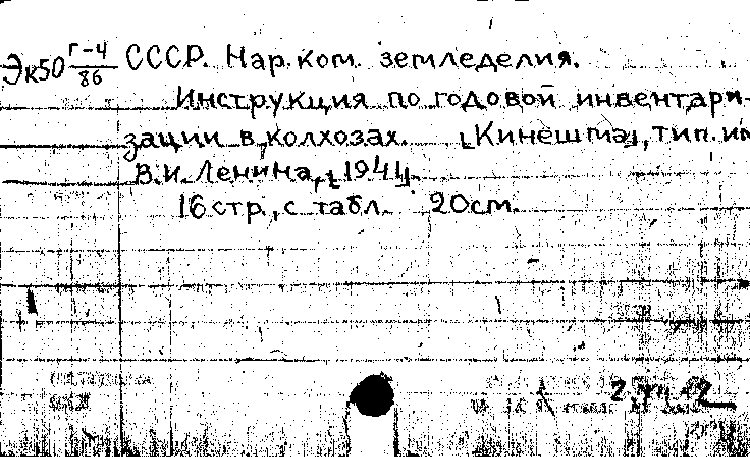 Эк50 Г-4/86 СССР. Нар. ком. земледелия.
Инструкция по годовой инвентари-
зации в колхозах. [Кинешма], тип. им
В. И. Ленина, [1941].
16 стр., с табл. 20 см.